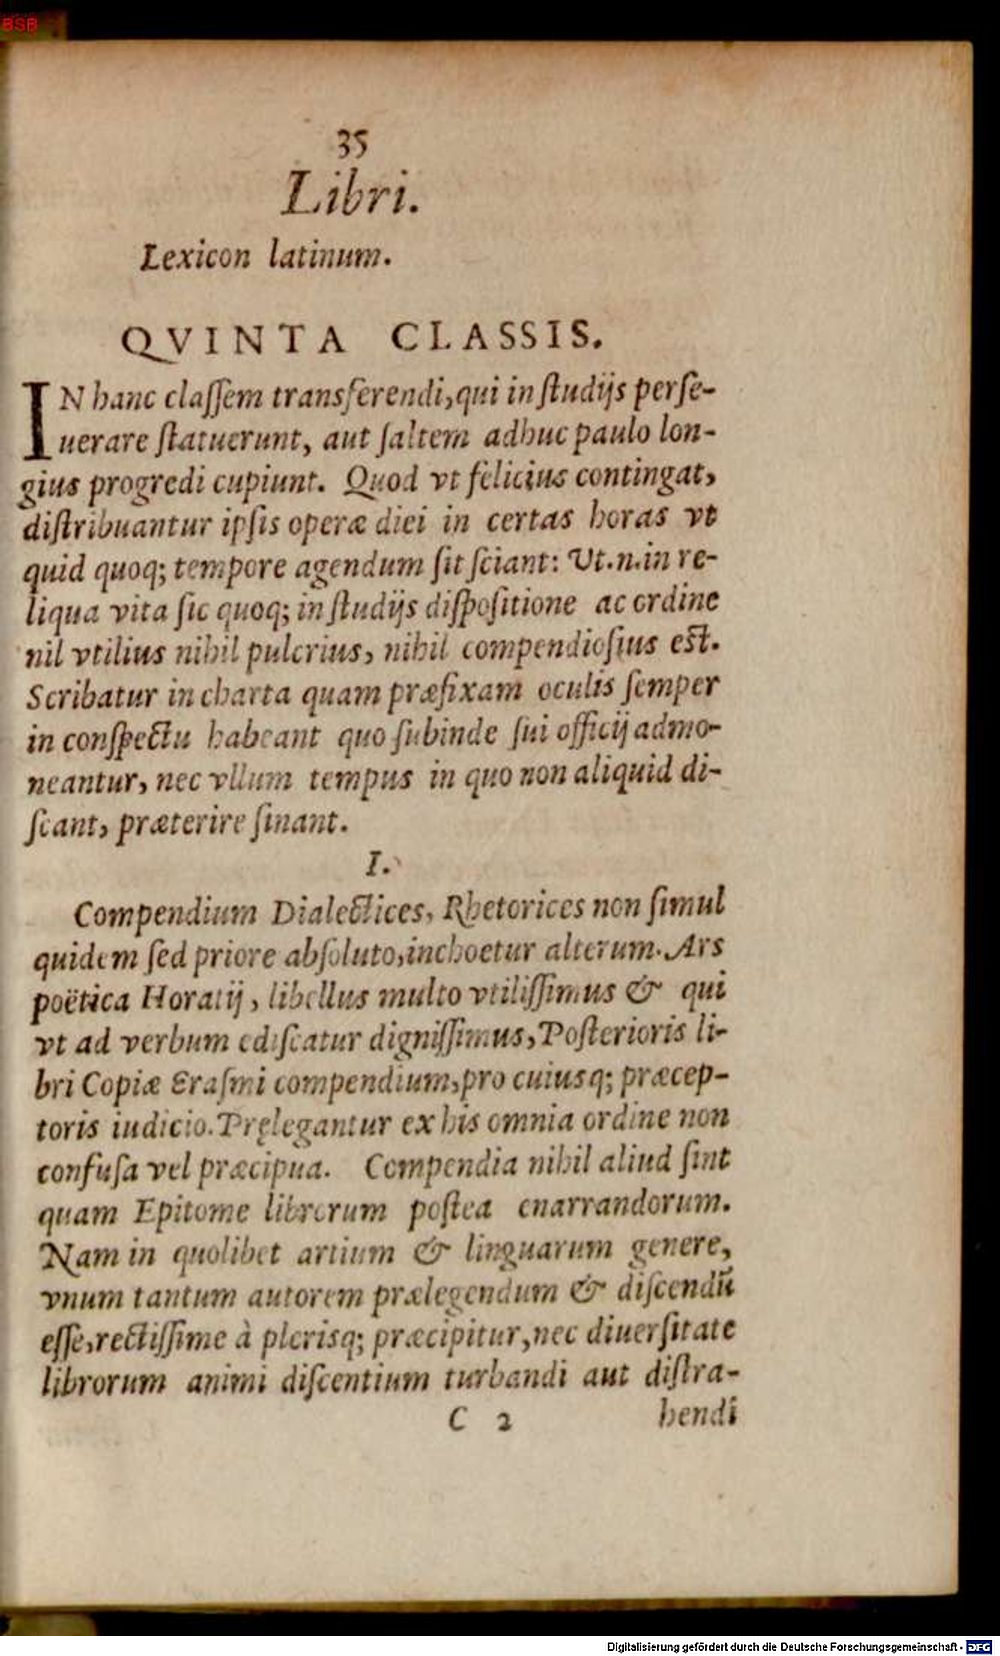 BSB
35
Libri.
Lexicon latinum.
QVINTA CLASSIS.
IN hanc claſſem transferendi, qui in ſtudijs perſe-
uerare ſtatuerunt, aut ſaltem adhuc paulo lon-
gius progredi cupiunt. Quod vt felicius contingat,
diſtribuantur ipſis operæ diei in certas horas vt
quid quoq; tempore agendum ſit ſciant: Vt.n.in re-
liqua vita ſic quoq; in ſtudijs diſpoſitione ac ordine
nil vtilius nihil pulcrius, nihil compendioſius eſt.
Scribatur in charta quam præfixam oculis ſemper
in conſpectu habeant quo ſubinde ſui officij admo-
neantur, nec vllum tempus in quo non aliquid di-
ſcant, præterire ſinant.
I.
Compendium Dialectices, Rhetorices non ſimul
quidem ſed priore abſoluto, inchoetur alterum. Ars
poëtica Horatij, libellus multo vtiliſſimus & qui
vt ad verbum ediſcatur digniſſimus, Poſterioris li-
bri Copiæ Eraſmi compendium, pro cuiusq; præcep-
toris iudicio. Pręlegantur ex his omnia ordine non
confuſa vel præcipua. Compendia nihil aliud ſint
quam Epitome librorum poſtea enarrandorum.
Nam in quolibet artium & linguarum genere,
vnum tantum autorem prælegendum & diſcendũ
eſſe, rectiſſime à plerisq; præcipitur, nec diuerſitate
librorum animi diſcentium turbandi aut diſtra-
C 2 hendi
Digitalisierung gefördert durch die Deutsche Forschungsgemeinschaft - DFG